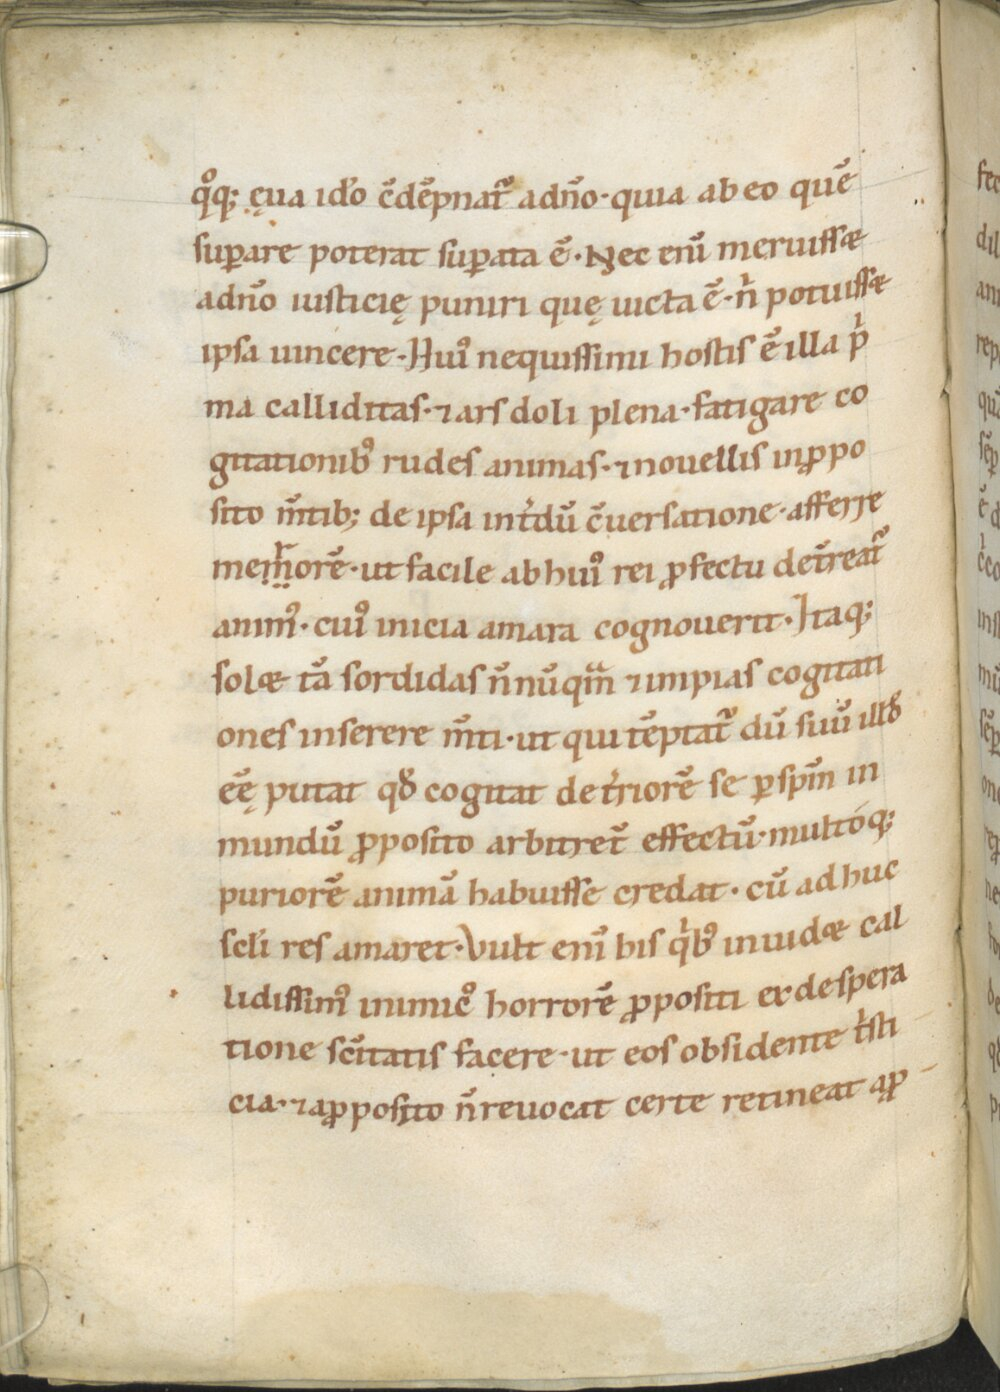 qͦq; ęua idͦo c̄dēpnat᷑ adn̄o · quia ab eo quē
suꝑare poterat suꝑata ē · Nec eni̅ meruissæ
adn̄o iusticię puniri quę uicta ē · n̍ potuissæ
ipsa uincere · Huiꝰ nequissimi hostis ē illa pͥ
ma calliditas · ⁊ ars doli plena · fatigare co
gitationibꝰ rudes animas · ⁊ nouellis inꝓpo
sito m̄tib; de ipsa int̍dū c̄uersatione · afferre
mem̍orē · ut facile ab huiꝰ rei ꝓfectu det̄reat᷑
animꝰ · cuiꝰ inicia amara cognouerit · Itaq;
solæ tā sordidas n̄nūqm̅ ⁊ impias cogitati
ones inserere m̄ti · ut qui tēptat᷑ dū suū illđ
eēę putat qđ cogitat det̍riorē se ꝑ spm̄ in
mundū ꝓposito arbitret᷑ effectū · multoq;
puriorē animā habuisse credat · cū adhuc
scl̍i res amaret · Vult eni̅ bis qͥbꝰ inuidæ cal
lidissimꝰ inimicꝰ horrorē ꝓpositi ex despera
tione sc̄itatis facere · ut eos obsidente tͥsti
cia · ⁊ aꝓposito n̄ reuocat certe retineat aꝓ